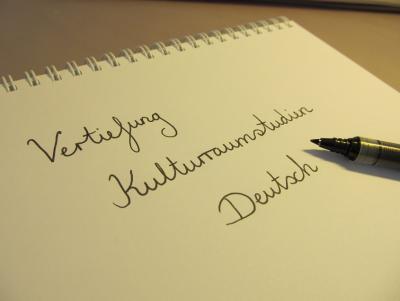 Vertiefung
Kulturraumstudien
Deutsch